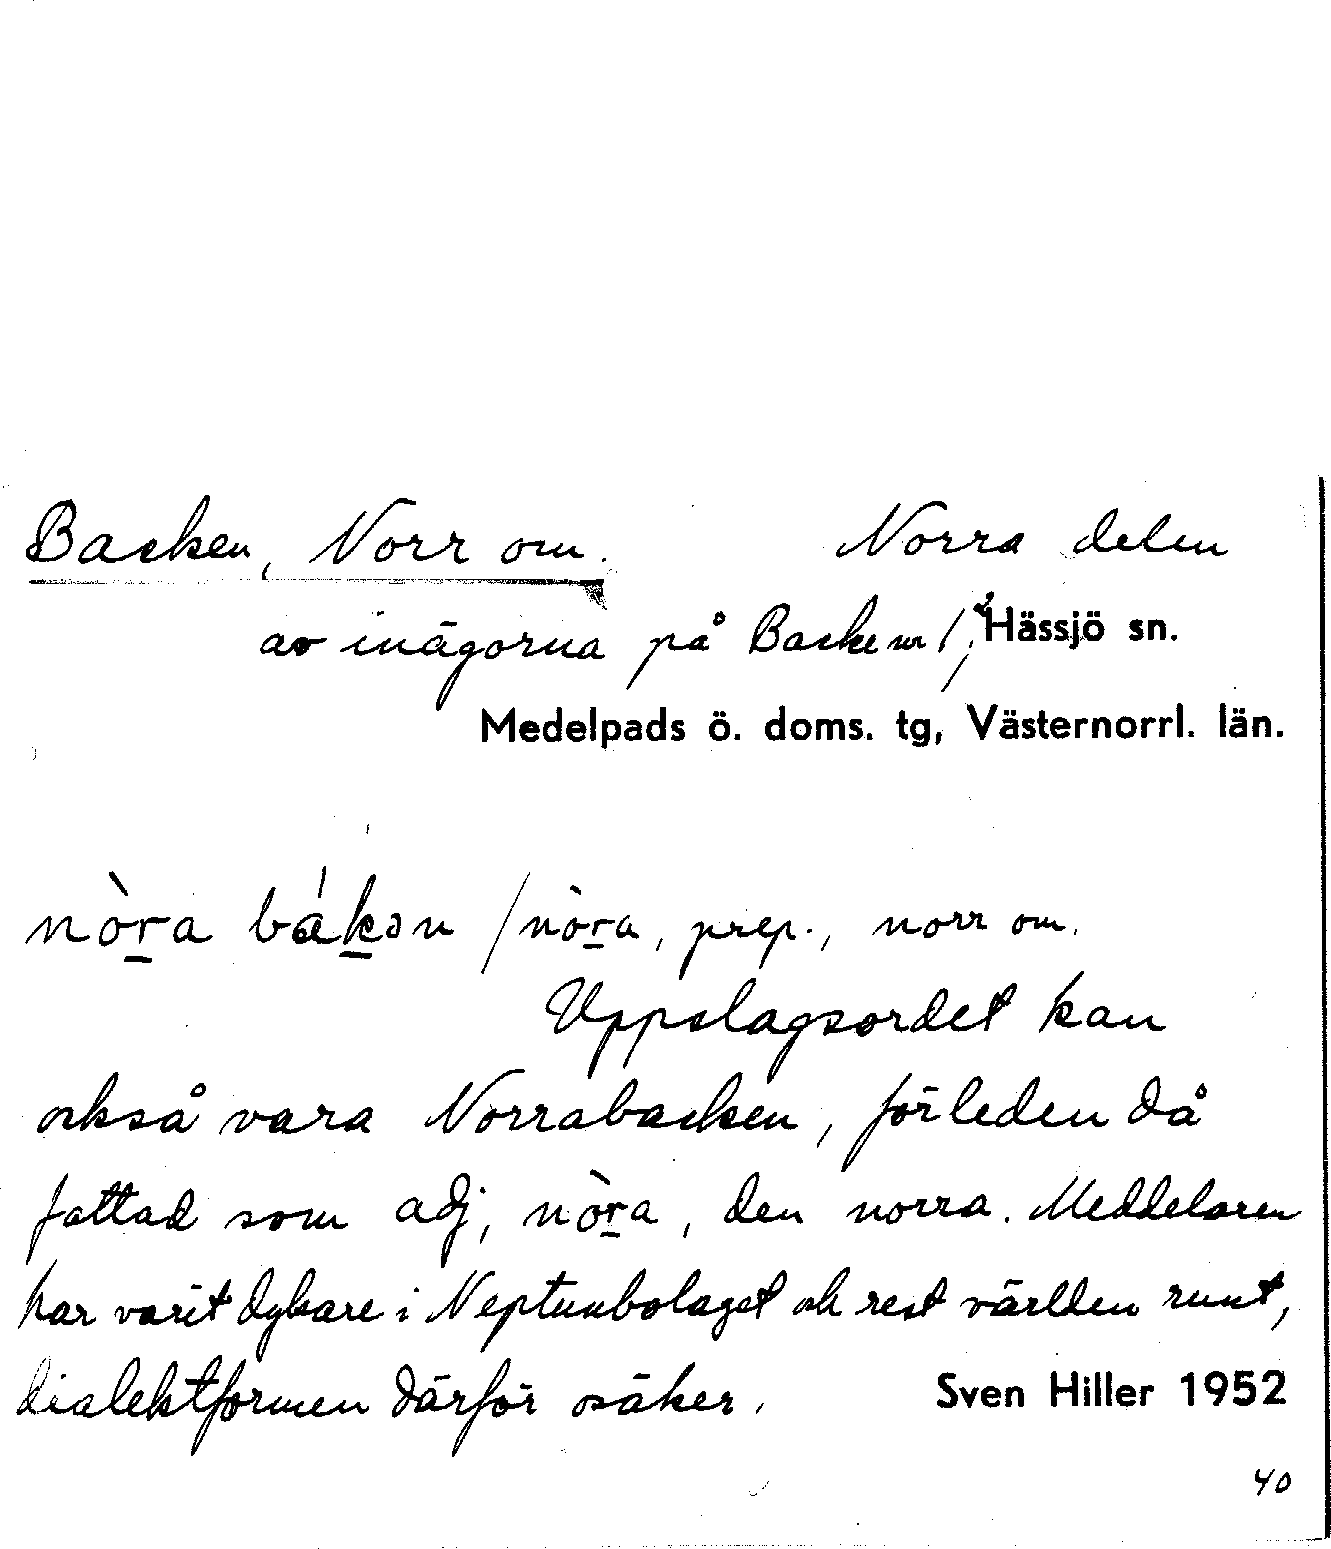 Backen, Norr om. Norra delen
av inägorna på Backen /, Hässjö sn.
Medelpads ö. doms. tg, Västernorrl. län.
nòr̲a bák̲ən / nòr̲a, prep., norr om.
Uppslagsordet kan
också vara Norrabacken, förleden då
fattad som adj, nòr̲a, den norra. Meddelaren
har varit dykare i Neptunbolaget och rest världen runt,
dialektformen därför osäker. Sven Hiller 1952
40